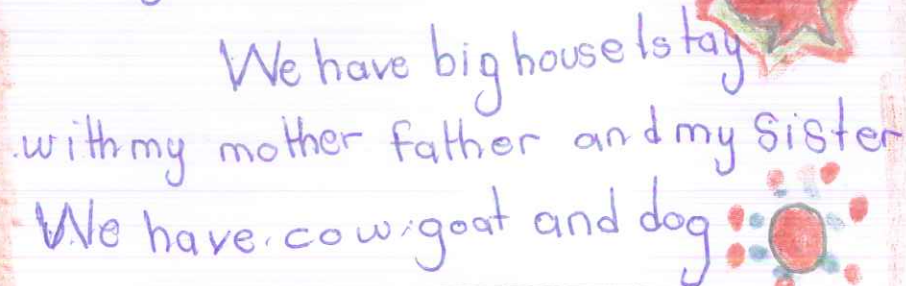 We have big house I stay
with my mother father and my sister
We have cow goat and dog